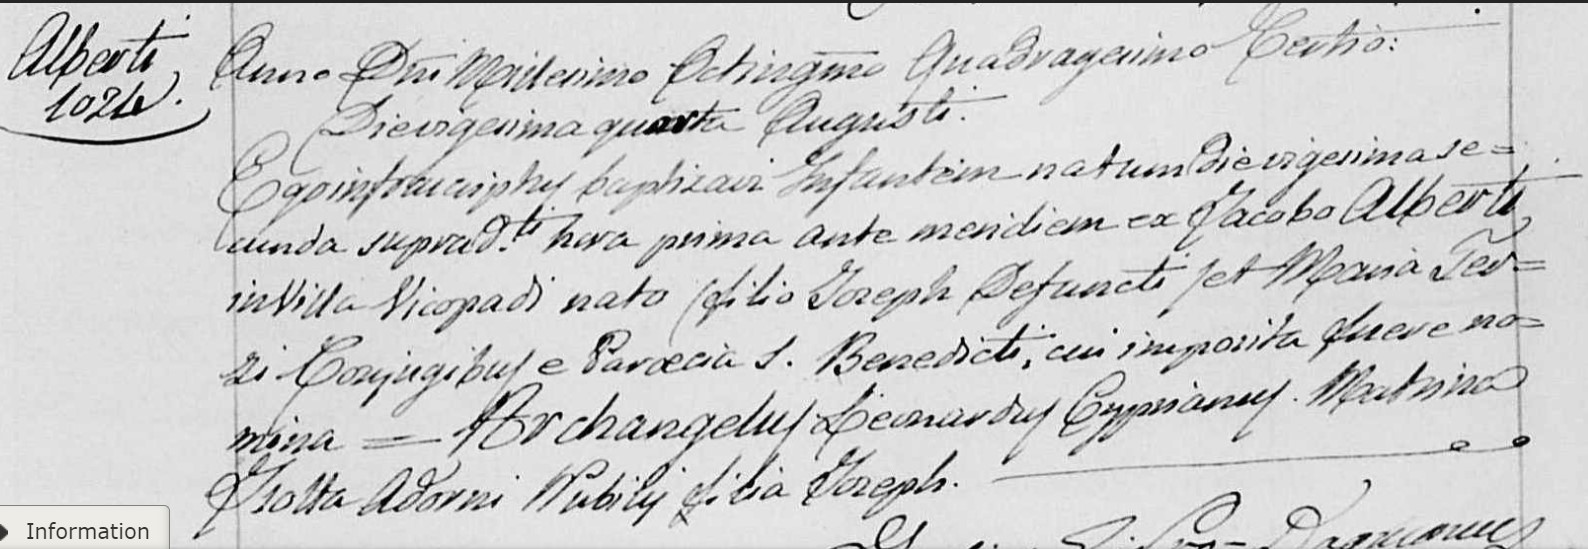 Alberti
1024.
Anno Dni Millesimo Octingmo Quadragesimo Tertio:
Die vigesima quarta Augusti.
Ego infrascriptus baptizavi Infantem natum Die vigesima se=
cunda suprad.ti hora prima ante meridiem ex Jacobo Alberti
in Villa Vicopadi nato (filio Joseph Defuncti) et Maria Ter=
zi Conjugibus e Paroecia S. Benedicti, cui imposita fuere no=
mina = Archangelus Leonardus Cyprianus. Matrina
Isotta Adorni Nubilis filia Joseph.
Information